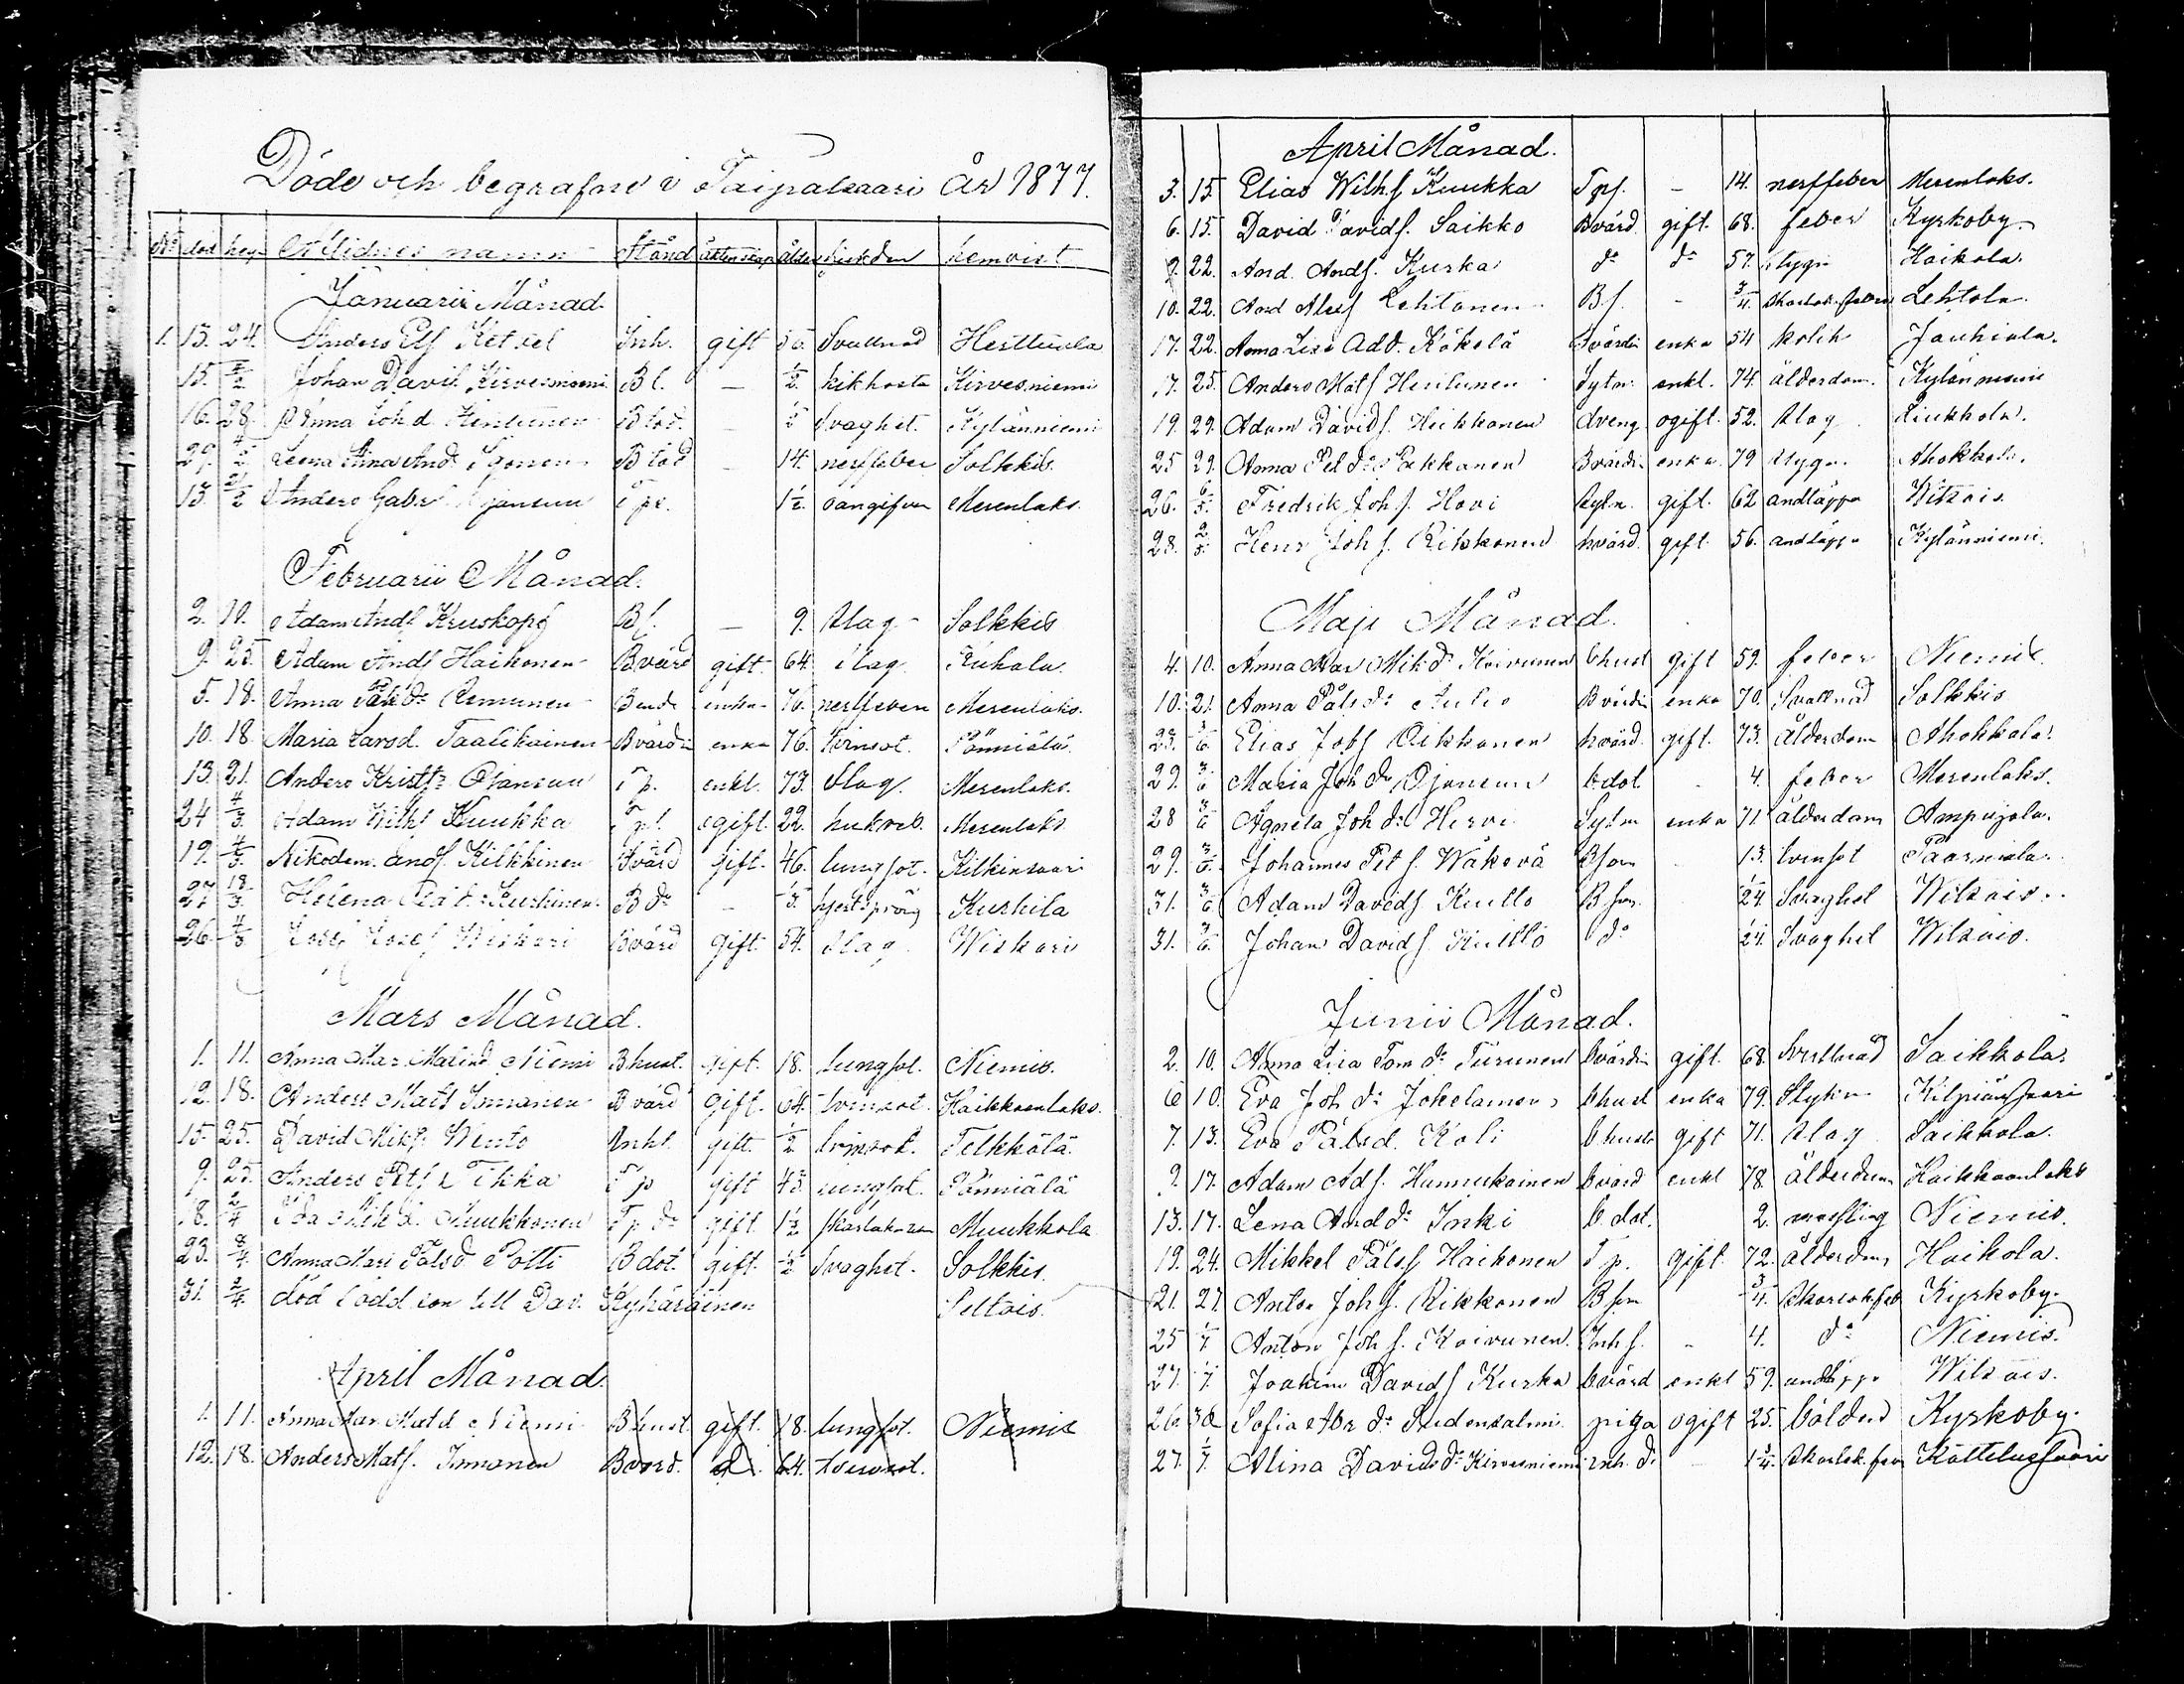 Döde och begrafne i Taipalsaari År 1877.
No död beg Aflidnes namn Stånd äktenskap ålder sjukdom hemvist
Januarii Månad.
1. 13. 24. Anders Inh. gift 50 Svullnad Herttuala
15. 2/2 Johan David Kirvesniemi Bs. — 1/2 kikhosta Kirvesniemi
16. 28. Anna Joh d. B dot. — 1/2 Svaghet. Kylänniemi
29. 4/2 Leena Anna And. B dot — 14. nerffeber Solkkis.
13. 21/2 Anders Gabr. 1 1/2. oangifven Merenlaks.
Februarii Månad.
2. 10. Adam Ands Kruskopf Bs. — 9. slag Solkkis
9. 25. Adam Ands Haikonen B värd gift 64. slag
5. 18. Anna Påls dr enka 76. nerffeber Merenlaks.
10. 18. Maria Larsd. Taalikainen B värdin enka 76. Tvinsot. Pönniälä.
13. 21. Anders Kristfs Ojansuu Tp. enkl. 73. slag. Merenlaks.
24 4/3. Adam Wilhs Kuukka ogift. 22. Merenlaks
19. 4/3. Nikodem. ands. Kilkkinen B värd gift. 46. lungsot. Kilkinsaari
27 18/3. Helena B dr — Kurhila
26. 4/3 Josef Wiskari B värd gift. 54. slag Wiskari
Mars Månad.
1. 11. Anna Mar. Matsd. Niemi B hust. gift. 18. lungsot. Niemis.
12. 18. Anders Mats Inmanen B värd gift. 64. tvinsot. Haikkaanlaks.
15. 25. David Miks. Wento Inhs. gift. 1/2 tvinsot. Telkkälä.
9. 25. Anders Pets Tikka Tp gift 43 lungsot. Pönniälä
18. 2/4 Ida Mik d. Muukkonen Tp dr gift. 1 1/2 skarlakan Muukkola
23. 2/4. Anna Mari Pålsd. Potti B dot. gift. 1/2 Svaghet. Solkkis.
31. 2/4. död född son till Dav. Kyhäräinen Peltois.
April Månad.
1. 11. Anna Mar. Matsd Niemi B hust. gift. 18. lungsot. Niemis
12. 18. Anders Mats. Inmanen B värd. d. 64. tvinsot.
April Månad.
3. 15. Elias Wilhs Kuukka Tps. — 14. nerffeber Merenlaks.
6. 15. David Davids. Saikko B värd. gift. 68. feber Kyrkoby.
9. 22. And. Ands. Kurka do do 57. styng Haikola.
10. 22. And Alexs Lehtonen Bs. - 3/4. skarlak. feber Lehtola.
17. 22. Anna Lisa Add. Kökölä B värdin enka 54 kolik Jauhiala.
17. 25. Anders Mats Hentunen Sytn. enkl. 74. älderdom. Kylänniemi
19. 29. Adam Davids. Heikkonen dreng ogift. 52. slag
25 29. Anna Pet dr Pakkanen B värdin enka 79 styng. Ahokkala.
26. 6/5. Fredrik Johs. Hovi Sytn. gift. 62 andtäppa Witsais.
28. 2/5. Henr Johs. Rikkonen hvärd. gift. 56. andtäppa Kylänniemi.
Maji Månad.
4. 10. Anna Mar Mik dr Koivunen bhust gift 59. feber Niemis.
10. 21. Anna Påls dr B värdin enka 70. Svullnad Solkkis
23. 3/6. Elias Johs Rikkonen hvärd. gift. 73. Ålderdom Ahokkala.
29. 3/6 Maria Joh dr Ojansuu bdot. - 4. feber Merenlaks.
28 3/6 Agneta Joh dr Hervi Sytn enka 71. älderdom Ampujala.
29. 3/6. Johannes Pets. Wäkevä Bson - 13. tvinsot
31. 3/6 Adam Davids Kullo B son. 1/24. Svaghet Witsais.
31. 3/6. Johan Davids. Kullo do 1/24. Svaghet Witsais.
Junii Månad.
2. 10. Anna Lisa Tom dr Turunen bvärdin gift. 68. Svullnad Saikkola.
6 10. Eva Joh dr Jokelainen bhust enka 79. Styng Kilpiänsaari
7. 13. Eva Pålsd. Koli bhust gift 71. slag Saikkola.
9. 17. Adam Ads. Hannukainen bvärd enkl 78. älderdom Haikkaanlaks
13. 17. Lena And dr Inki b dot. 2. messling Niemis.
19. 24. Mikkel Påls Haikonen Tp. gift. 72. älderdom Haikola.
21. 27. Anton Johs. Rikkonen Bson 3/4. Skarlak. feb Kyrkoby.
25 1/7 Anton Johs. Koivunen Inhs. - 4. do Niemis.
27. 1/7. Joakim Davids Kurka bvärd enkl 59. andtäppa Witsais.
26. 30 Sofia Abr dr Sudensalmi piga ogift 25. bölder Kyrkoby.
27. 1/7. Alina Davids dr Kirvesniemi inh. dr — 1 3/4. Skarlak. feber Kattelussaari